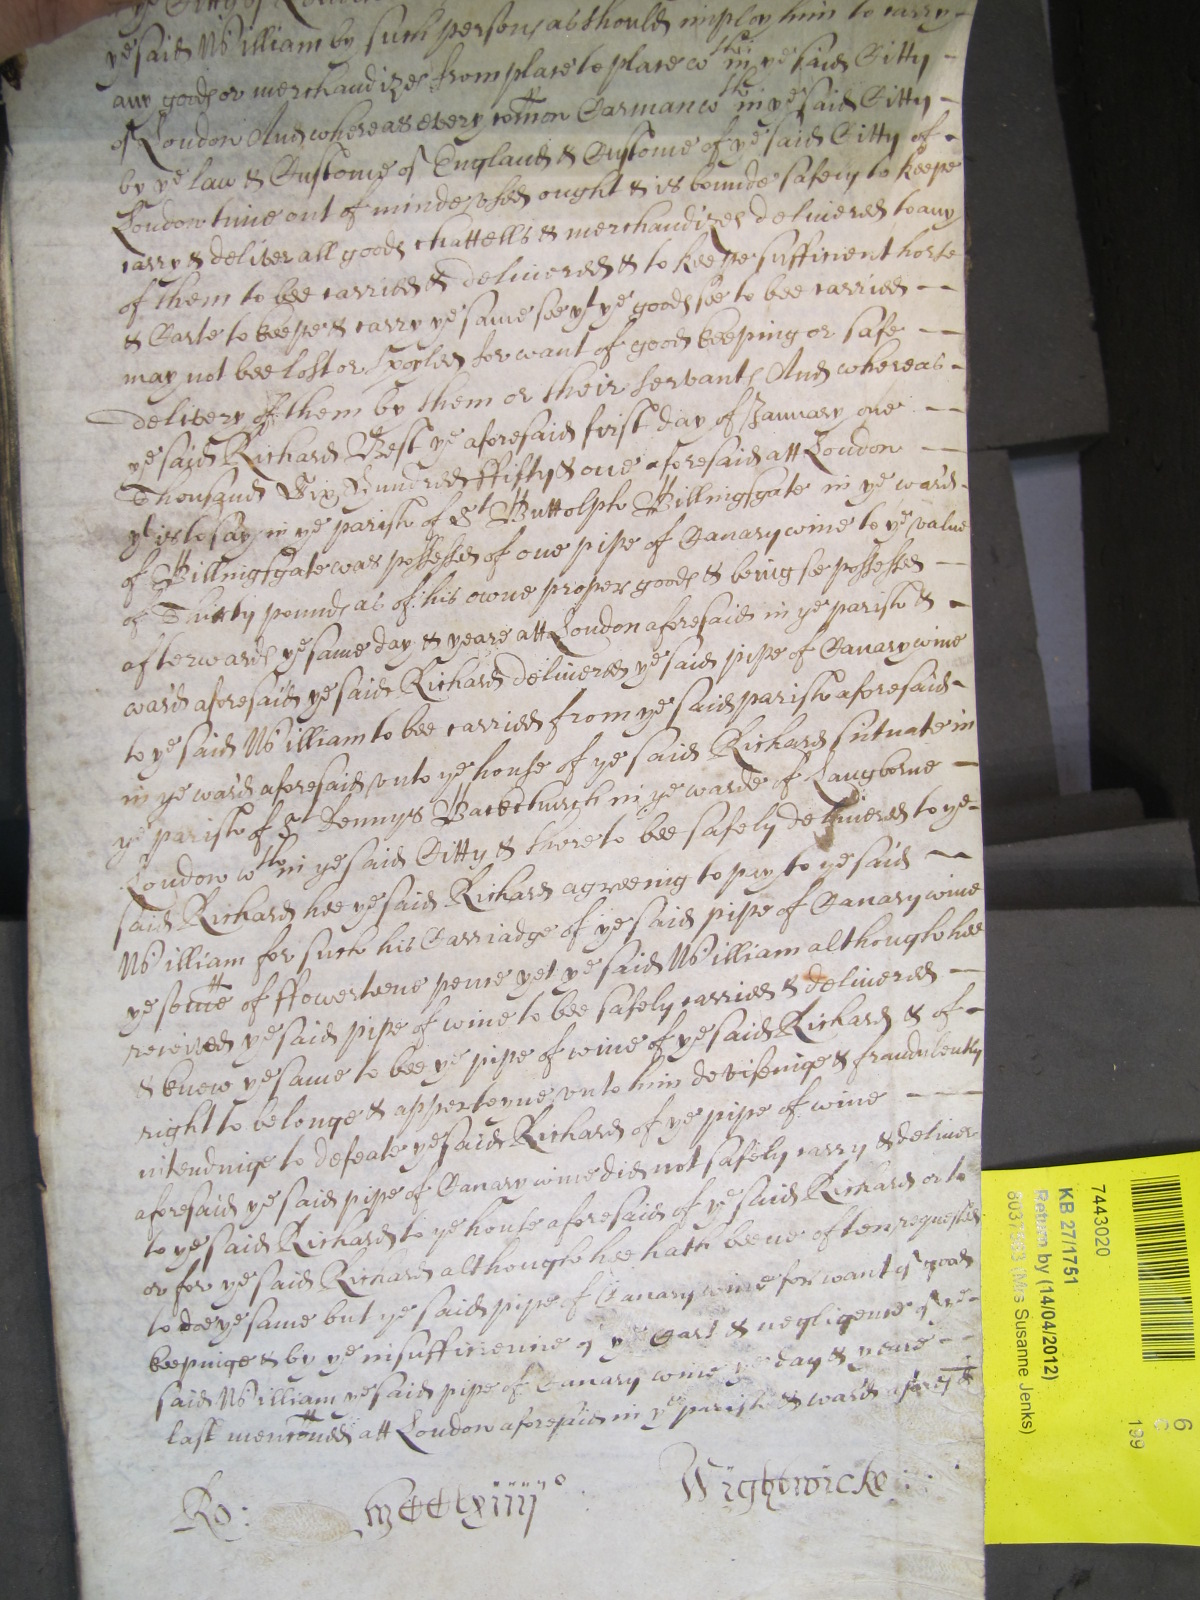 ye Citty of London
ye said William by such persons as should imploy him to carry
any goods or merchandizes from place to place wthin ye said Citty
of London And whereas every comon Carman wthin ye said Citty
by ye law & Custome of England & Custome of ye said Citty of
London time out of minde used ought & is bounde safely to keepe
carry & deliver all goods chattells & merchandizes delivered to any
of them to bee carried & delivered & to keepe sufficient horse
& Carte to keepe & carry ye same soe yt ye goods soe to bee carried
may not bee lost or spoyled for want of good keeping or safe
delivery of them by them or their servants And whereas
ye said Richard Best ye aforesaid first day of January one
Thousand Six Hundred ffifty & one aforesaid att London
yt is to say in ye parish of St Buttolph Billingsgate in ye ward
of Billingsgate was possessed of one pipe of Canary wine to ye value
of Thirty pounds as of his owne proper goods & being soe possessed
afterwards ye same day & yeare att London aforesaid in ye parish &
ward aforesaid ye said Richard delivered ye said pipe of Canary wine
to ye said William to bee carried from ye said parish aforesaid
in ye ward aforesaid unto ye house of ye said Richard situate in
ye parish of St Dennys Backchurch in ye warde of Langborne
London wthin ye said Citty & there to bee safely delivered to ye
said Richard hee ye said Richard agreeing to pay to ye said
William for such his Carriadge of ye said pipe of Canary wine
ye some of ffowerteene pence yet ye said William although hee
received ye said pipe of wine to bee safely carried & delivered
& knew ye same to bee ye pipe of wine of ye said Richard & of
right to belonge & apperteyne unto him devisinge & fraudulently
intendinge to defeate ye said Richard of ye pipe of wine
aforesaid ye said pipe of Canary wine did not safely carry & deliver
to ye said Richard to ye house aforesaid of ye said Richard or to
or for ye said Richard although hee hath beene often requested
to doe ye same but ye said pipe of Canary wine for want of good
keepinge & by ye insufficiencie of ye Cart & negligence of ye
said William ye said pipe of Canary wine ye day & yeare
last mencioned att London aforesaid in ye parish & ward aforesd
Ro: mccclxiiijo Wightwicke
7443020
KB 27/1751
Return by (14/04/2012)
(Mrs Susanne Jenks)
6
199